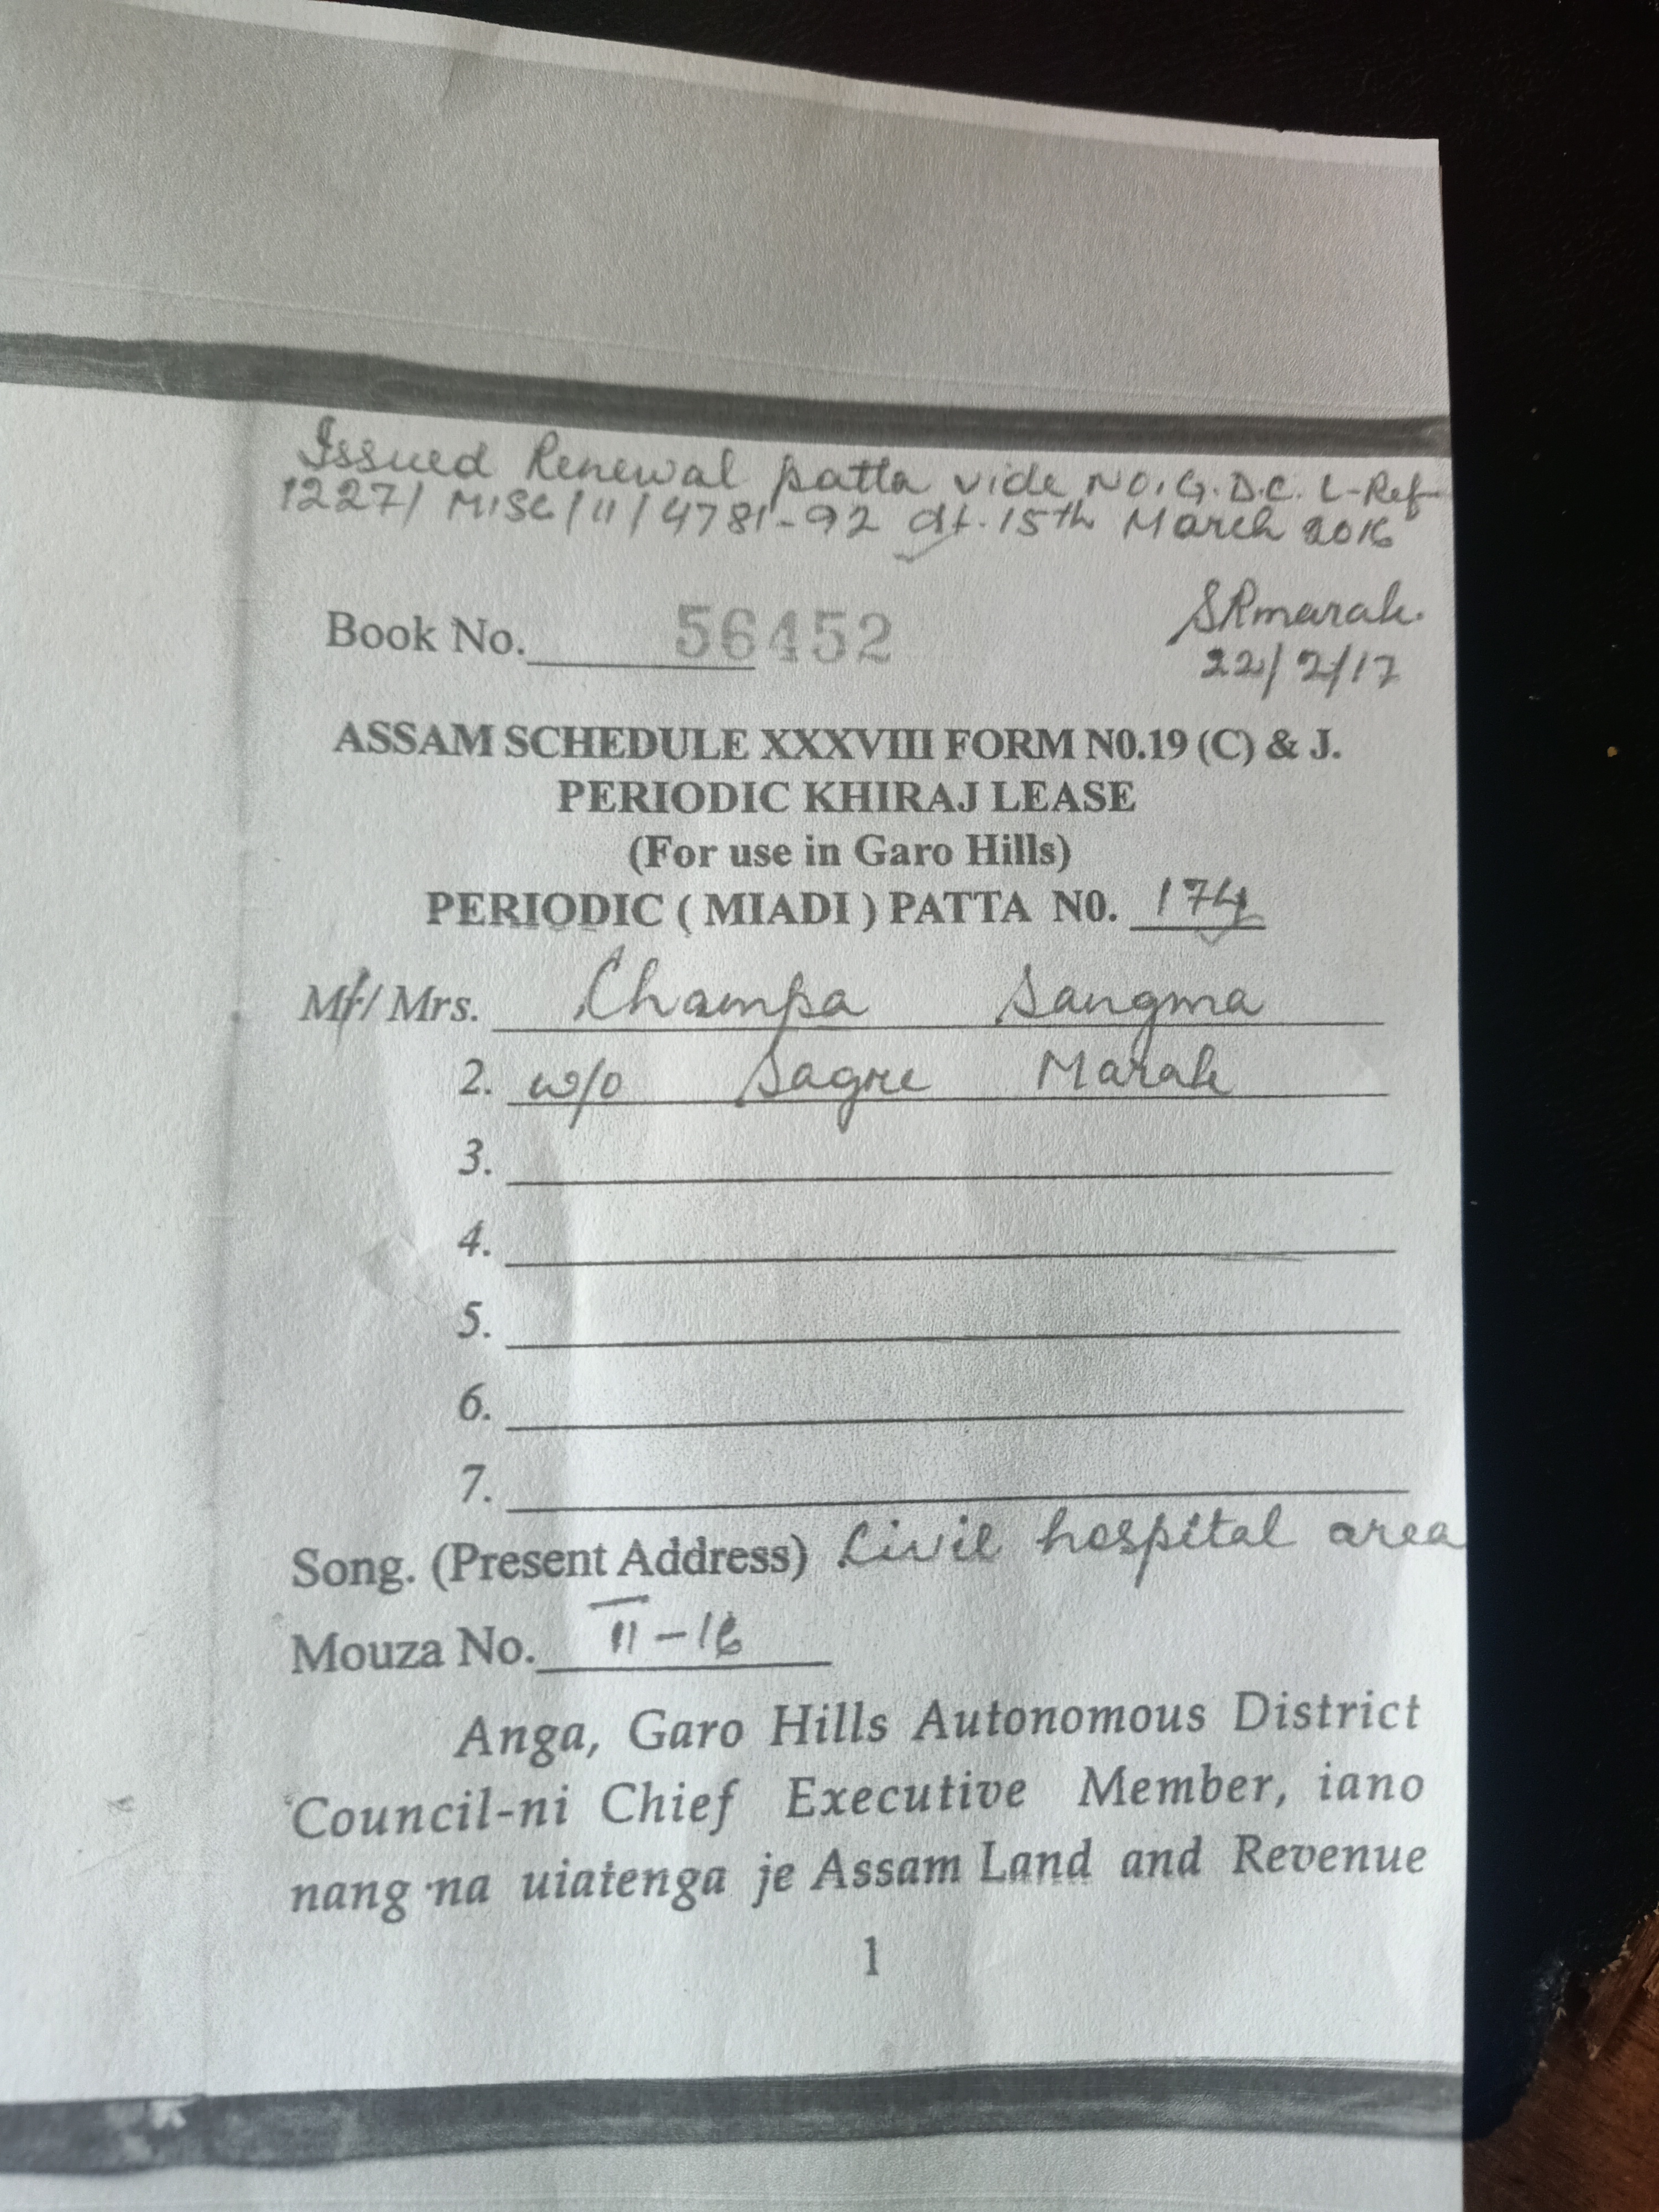 Issued Renewal patta vide NO. G.D.C. L-Ref-
1227/ MISC/11/4781-92 dt. 15th March 2016
SRmarak.
Book No. 56452
22/2/17
ASSAM SCHEDULE XXXVIII FORM N0.19 (C) & J.
PERIODIC KHIRAJ LEASE
(For use in Garo Hills)
PERIODIC ( MIADI ) PATTA N0. 174
Mr/ Mrs. Champa Sangma
2. w/o Sagre Marak
3.
4.
5.
6.
7.
Song. (Present Address) Civil hospital area
Mouza No. II-16
Anga, Garo Hills Autonomous District
Council-ni Chief Executive Member, iano
nang·na uiatenga je Assam Land and Revenue
1